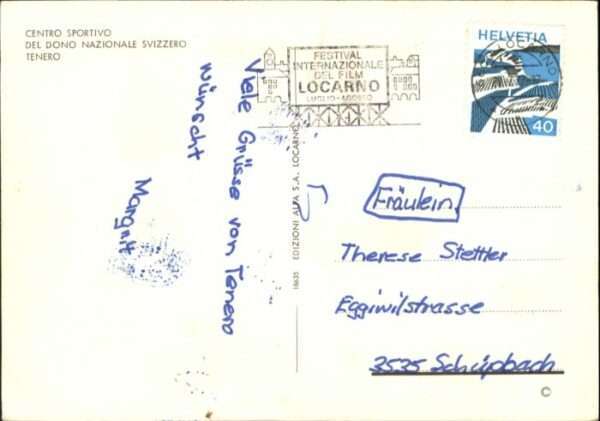 CENTRO SPORTIVO
DEL DONO NAZIONALE SVIZZERO
TENERO
Viele Grüsse von Tenero
wünscht
Margrit
18635 EDIZIONI ALFA S.A. LOCARNO
FESTIVAL
INTERNAZIONALE
DEL FILM
LOCARNO
LUGLIO-AGOSTO
LOCARNO
HELVETIA
40
Fräulein
Therese Stettler
Eggiwilstrasse
3535 Schüpbach
©